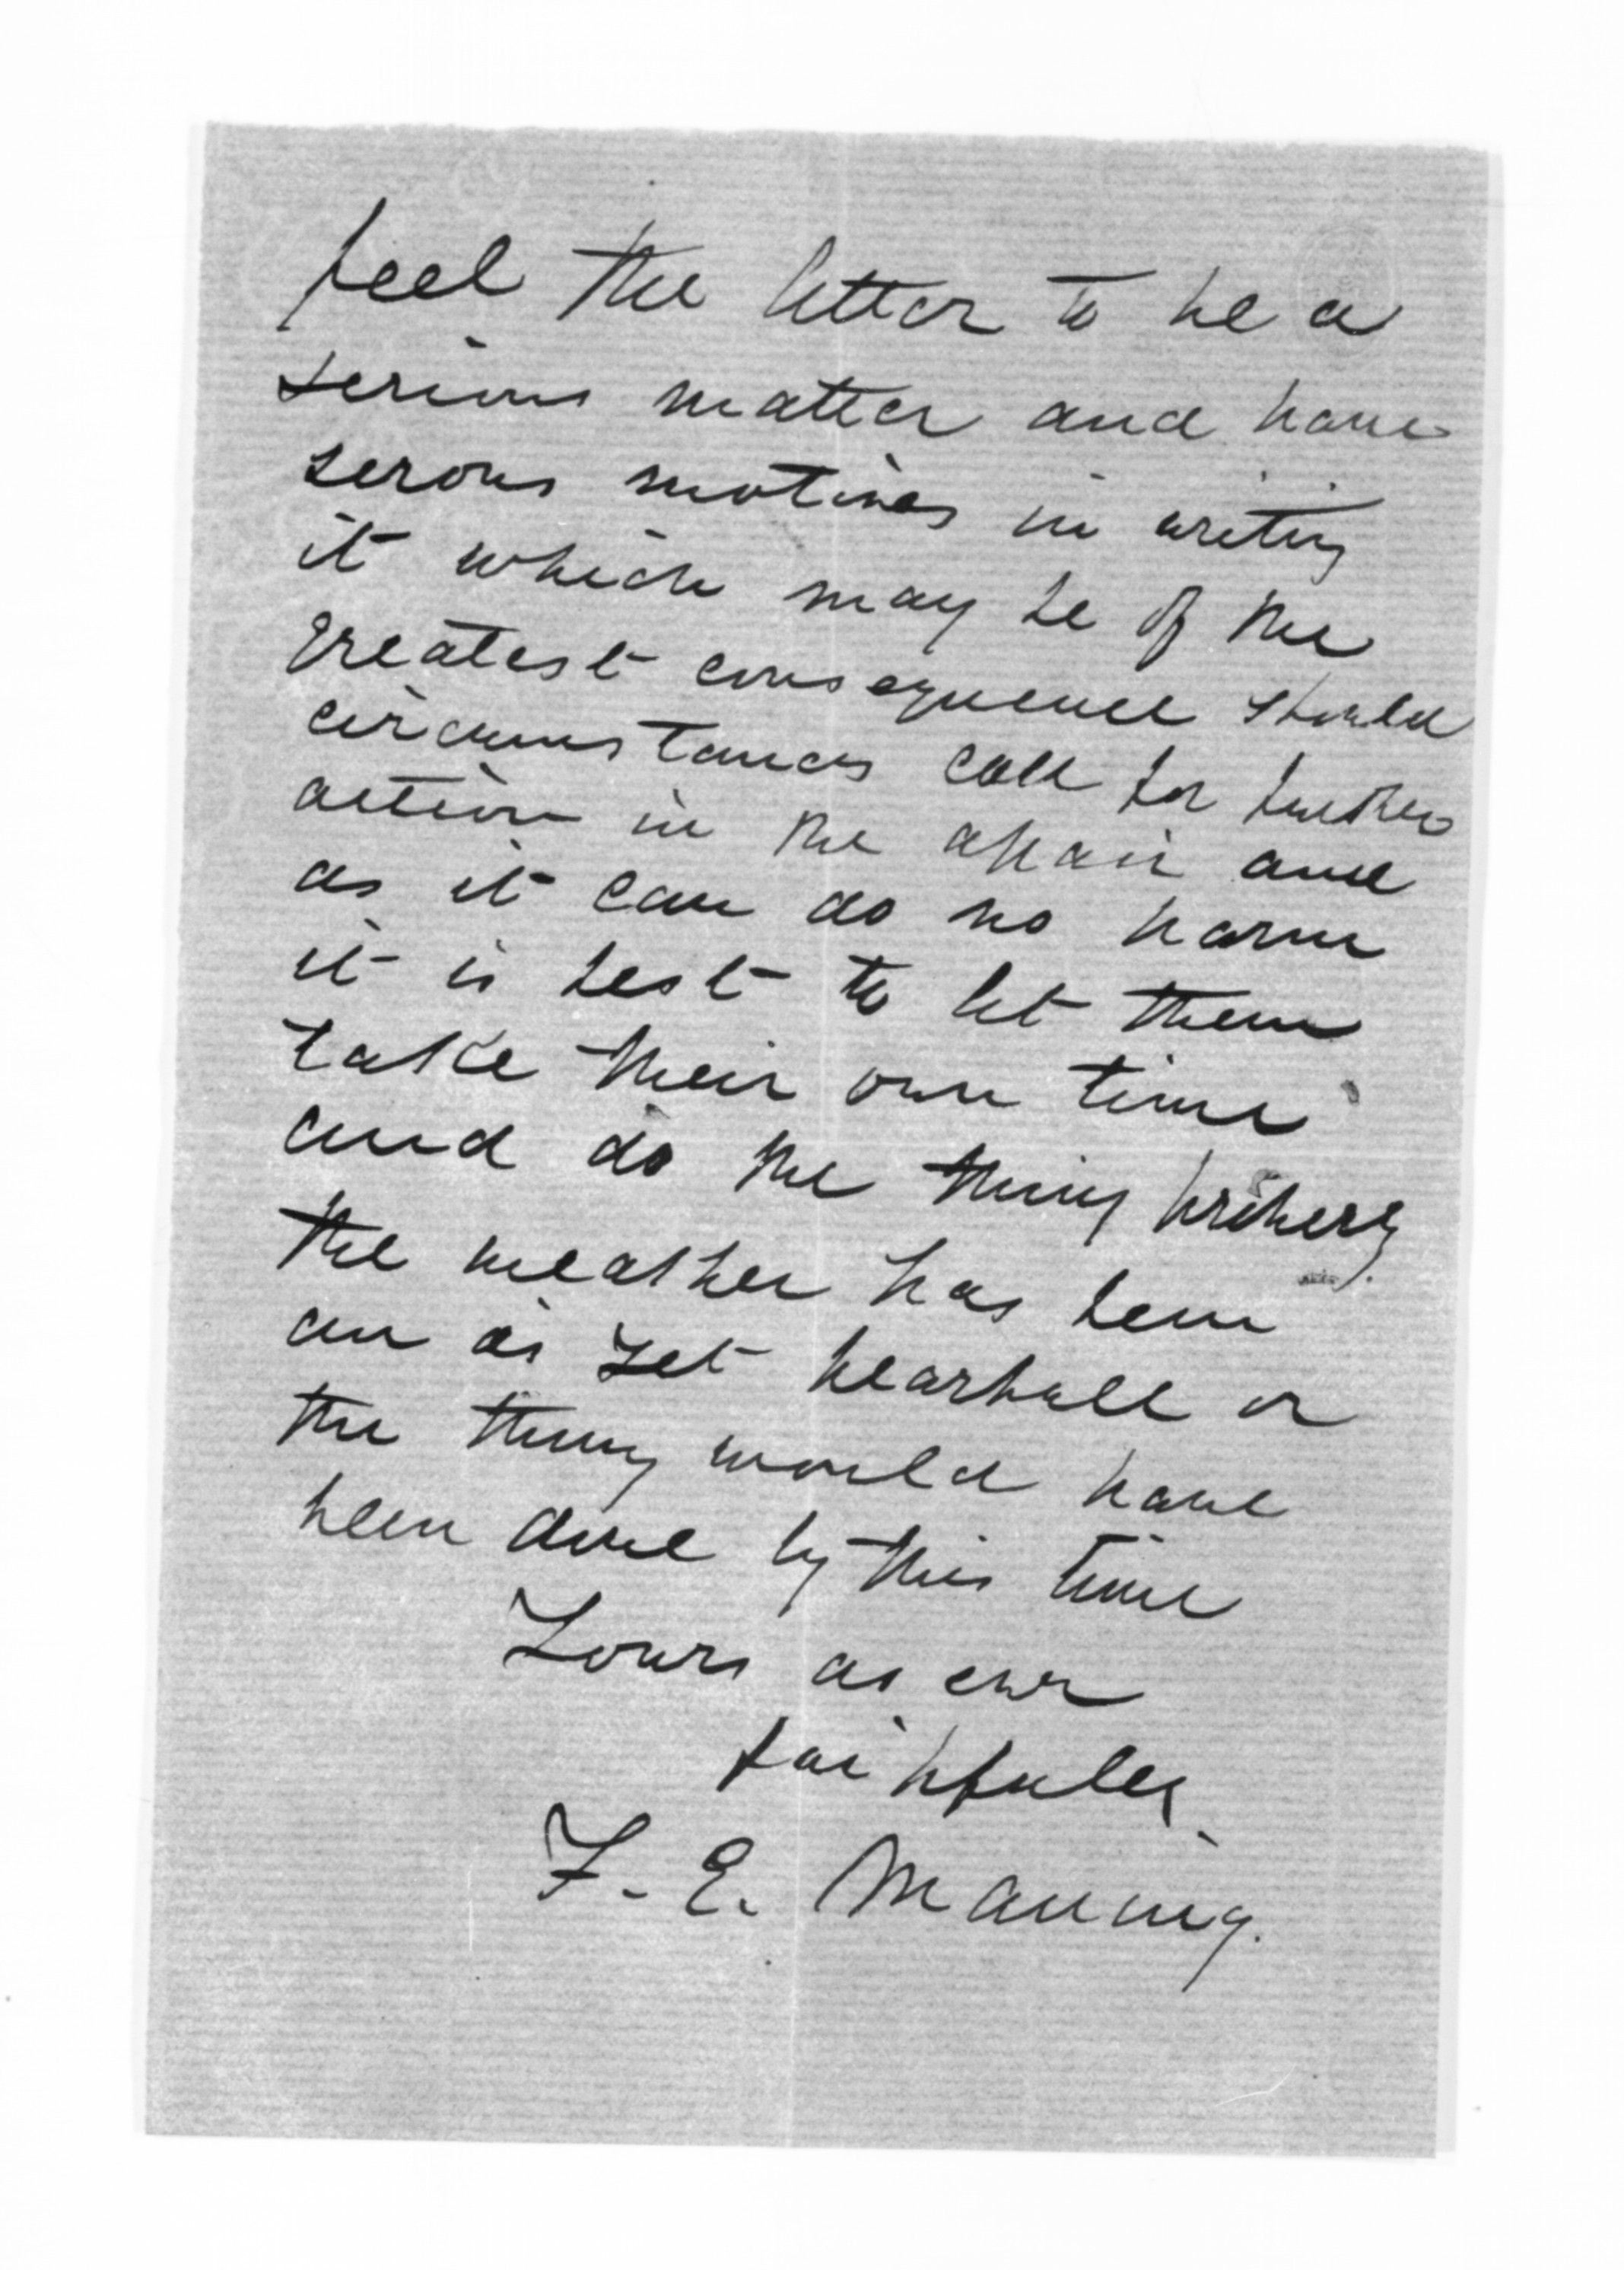 feel the letter to be a
serious matter and have
serous motives in writing
it which may be of the
greatest consequence should
circumstances call for further
action in the affair and
as it can do no harm
it is best to let them
take their own time
and do the thing properly
the weather has been
an as yet fearfull or
the thing would have
been done by this time
Yours as ever
faithfully
F. E. Maning.